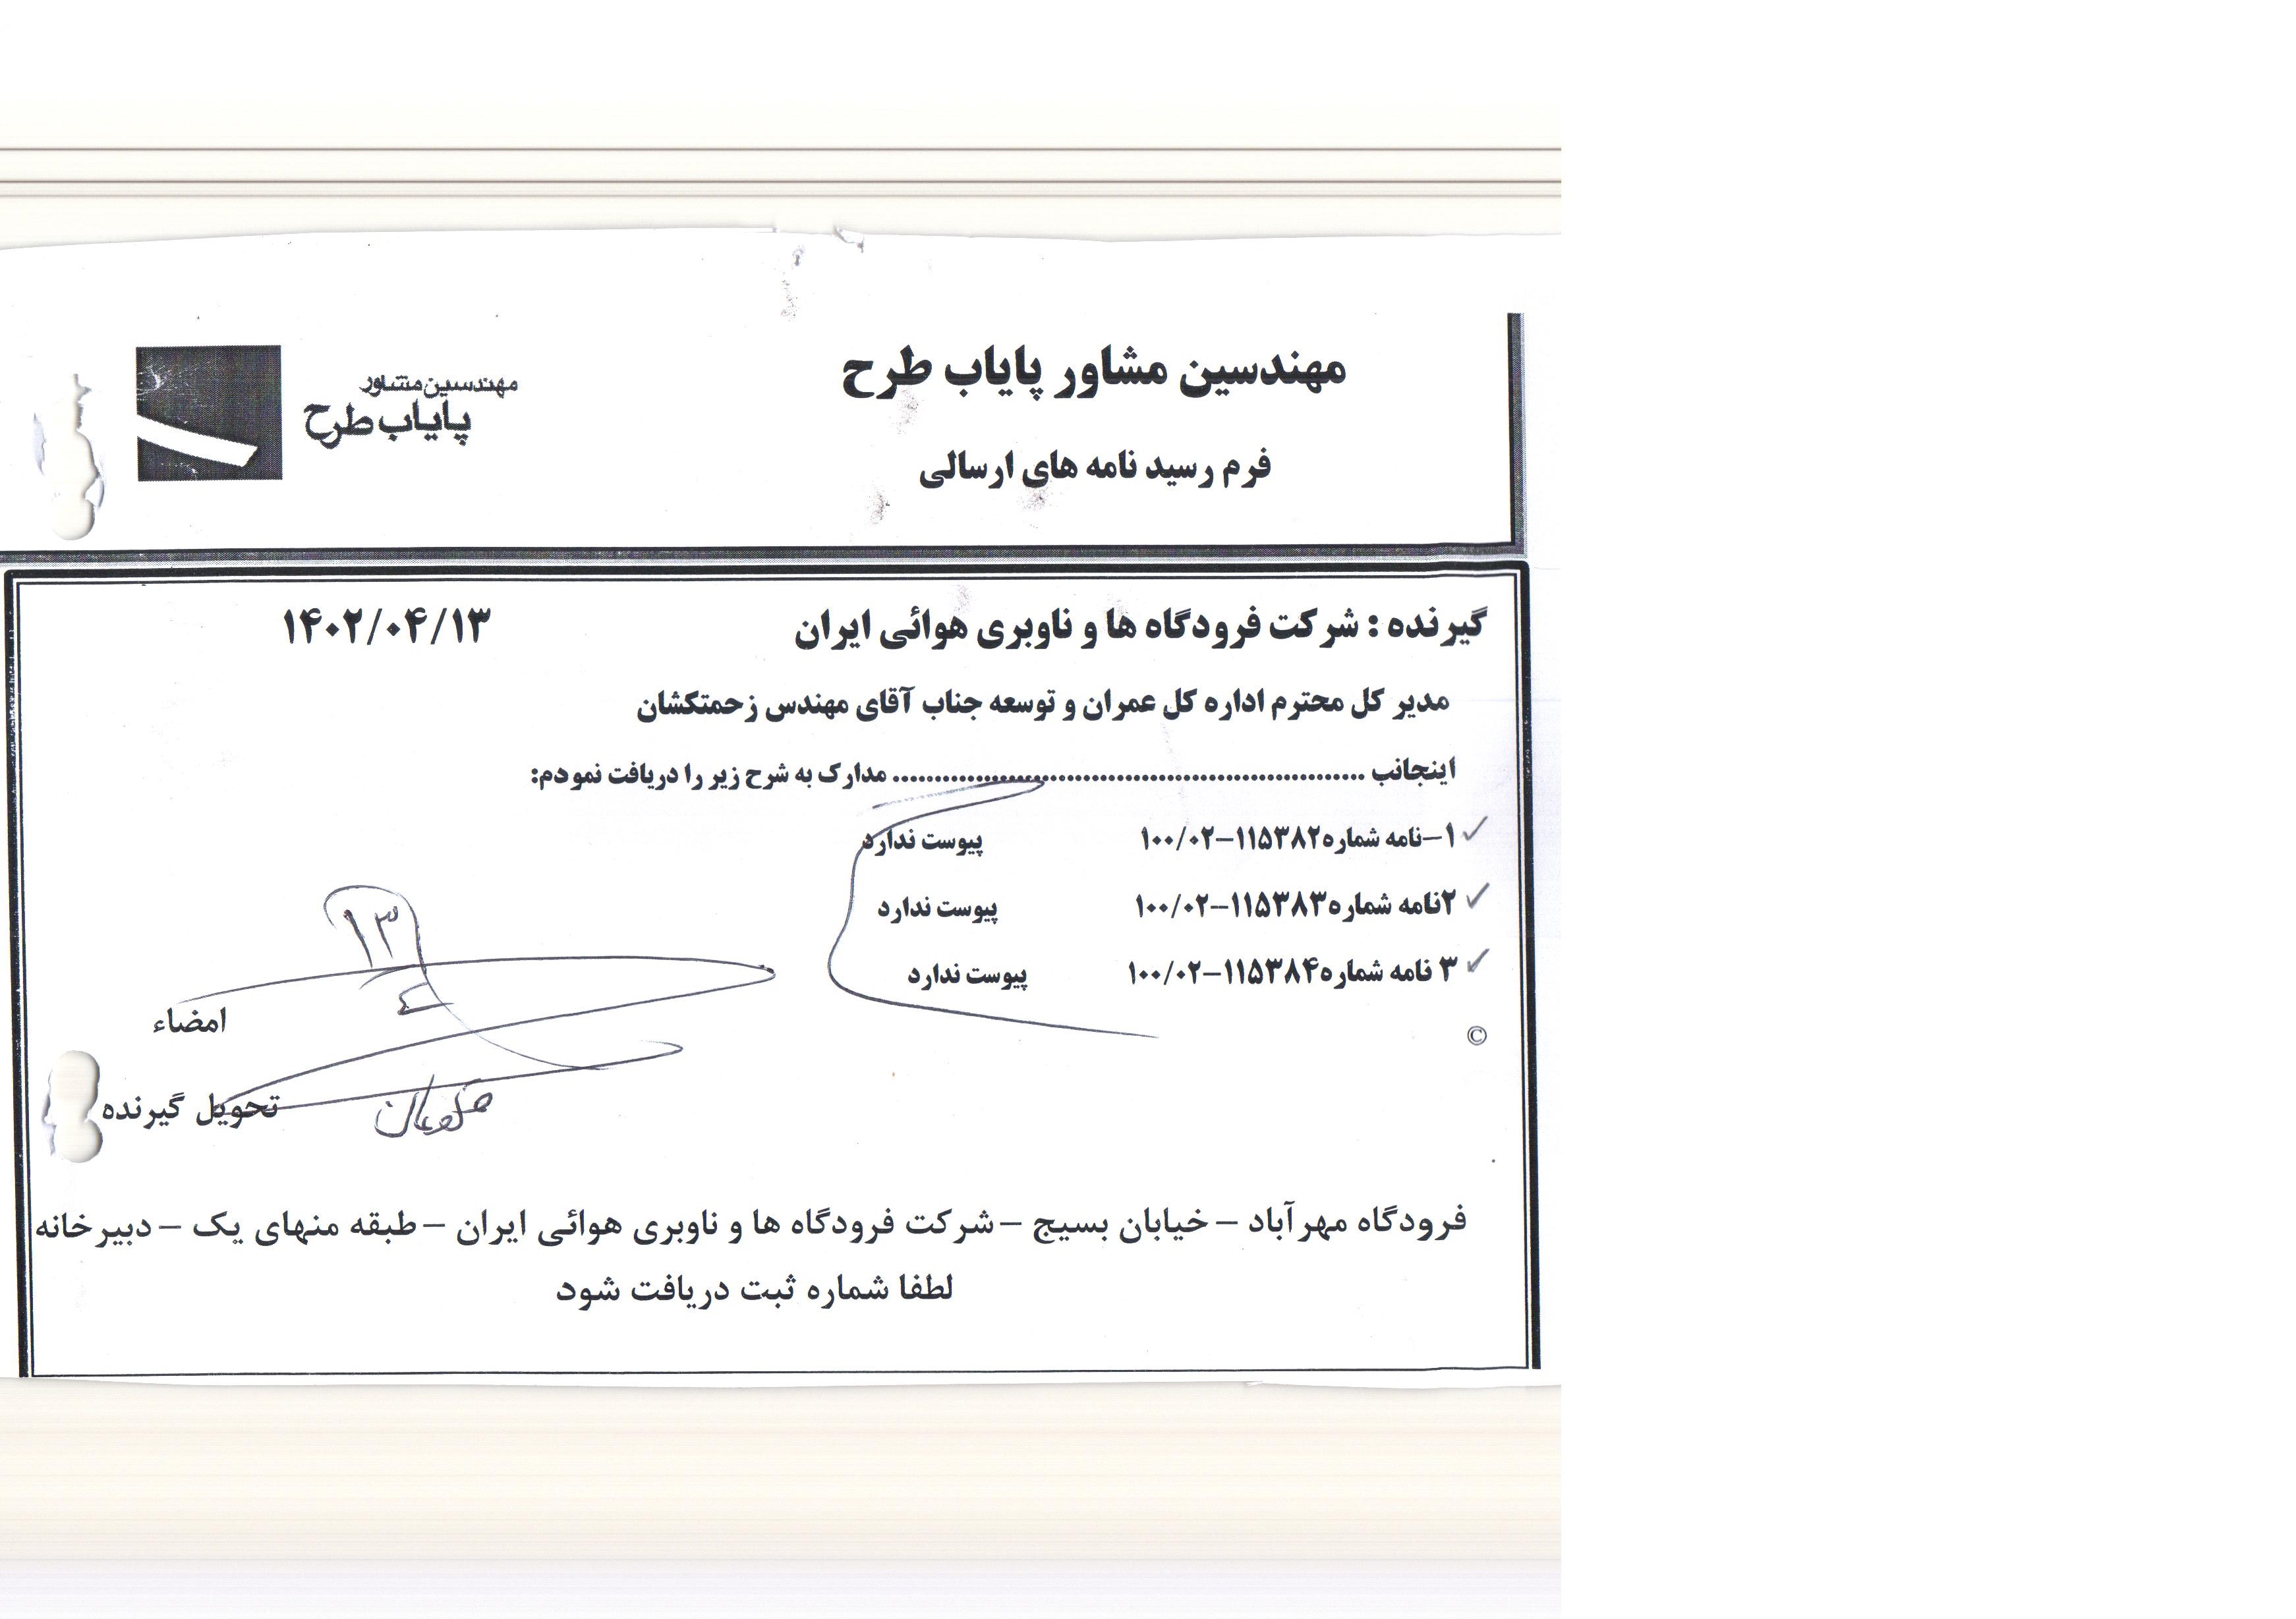 مهندسین مشاور پایاب طرح
مهندسین مشاور
پایاب طرح
فرم رسید نامه های ارسالی
گیرنده : شرکت فرودگاه ها و ناوبری هوائی ایران ۱۴۰۲/۰۴/۱۳
مدیر کل محترم اداره کل عمران و توسعه جناب آقای مهندس زحمتکشان
اینجانب ........................................................ مدارک به شرح زیر را دریافت نمودم:
✓ ۱–نامه شماره۱۱۵۳۸۲–۱۰۰/۰۲ پیوست ندارد
✓ ۲نامه شماره۱۱۵۳۸۳–۱۰۰/۰۲ پیوست ندارد
✓ ۳ نامه شماره۱۱۵۳۸۴–۱۰۰/۰۲ پیوست ندارد
©
۱۳
۴
امضاء
تحویل گیرنده
فرودگاه مهرآباد – خیابان بسیج – شرکت فرودگاه ها و ناوبری هوائی ایران – طبقه منهای یک – دبیرخانه
لطفا شماره ثبت دریافت شود